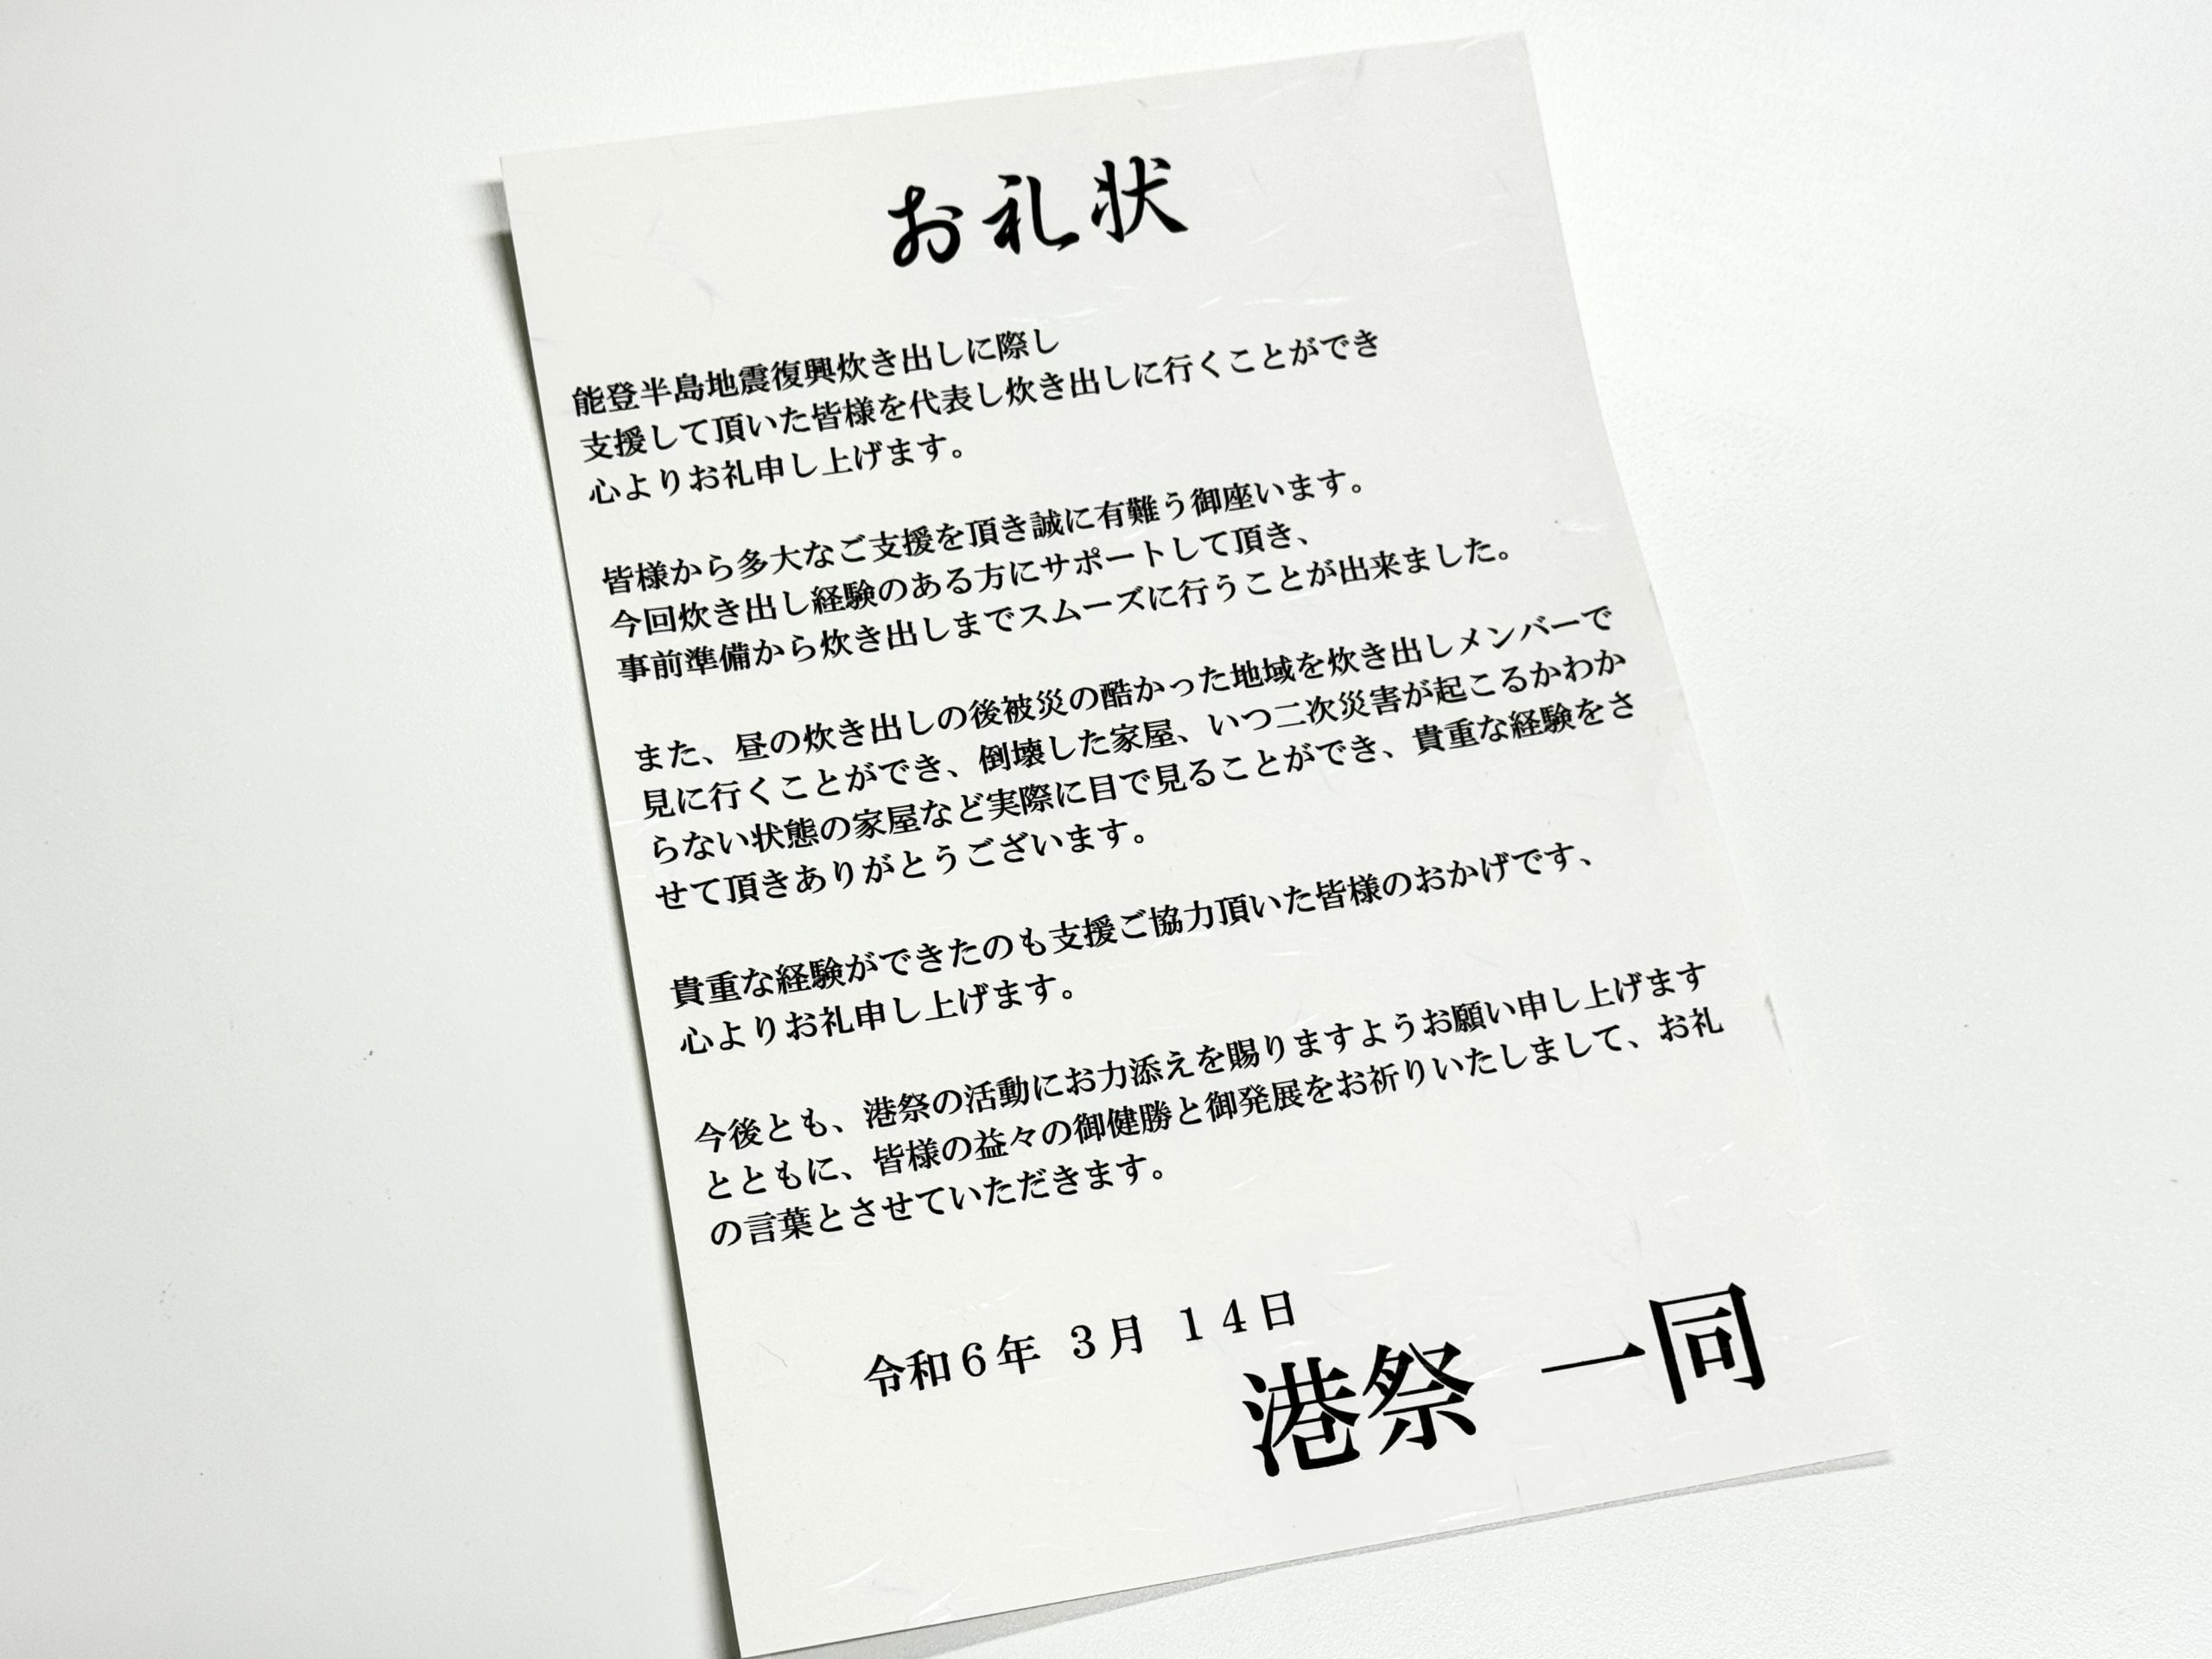 お礼状
能登半島地震復興炊き出しに際し
支援して頂いた皆様を代表し炊き出しに行くことができ
心よりお礼申し上げます。
皆様から多大なご支援を頂き誠に有難う御座います。
今回炊き出し経験のある方にサポートして頂き、
事前準備から炊き出しまでスムーズに行うことが出来ました。
また、昼の炊き出しの後被災の酷かった地域を炊き出しメンバーで
見に行くことができ、倒壊した家屋、いつ二次災害が起こるかわか
らない状態の家屋など実際に目で見ることができ、貴重な経験をさ
せて頂きありがとうございます。
貴重な経験ができたのも支援ご協力頂いた皆様のおかげです、
心よりお礼申し上げます。
今後とも、港祭の活動にお力添えを賜りますようお願い申し上げます
とともに、皆様の益々の御健勝と御発展をお祈りいたしまして、お礼
の言葉とさせていただきます。
令和6年 3月 14日
港祭 一同